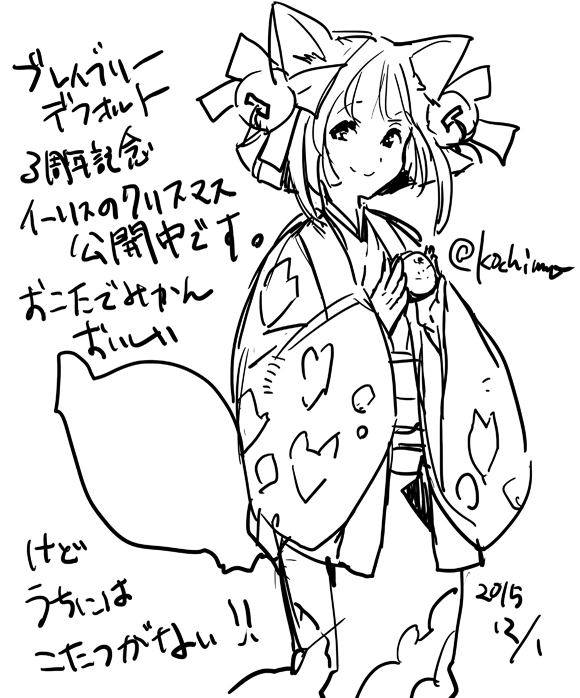 ブレイブリー
デフォルト
3周年記念
イーリスのクリスマス
公開中です。
おこたでみかん
おいしい
けど
うちには
こたつがない!!
@kochimu
2015
12/1